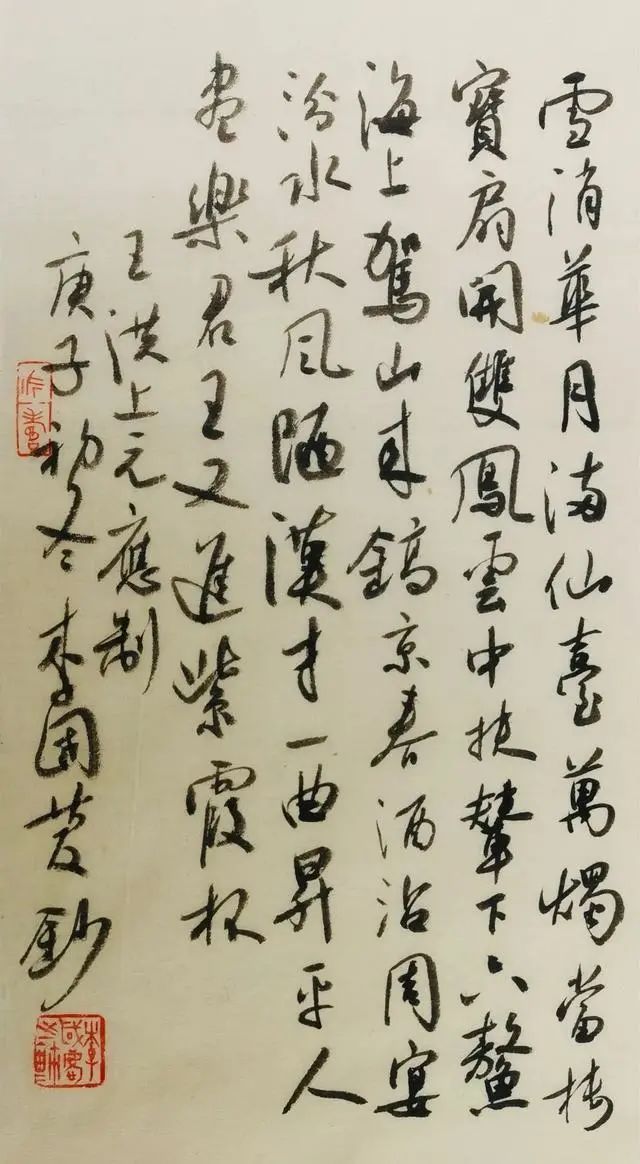 雪消華月滿仙臺萬燭當樓
寶扇開雙鳳雲中扶輦下六鰲
海上駕山來鎬京春酒沾周宴
汾水秋風陋漢才一曲昇平人
盡樂君王又進紫霞杯
王洪上元應制
庚子初冬李國鈔